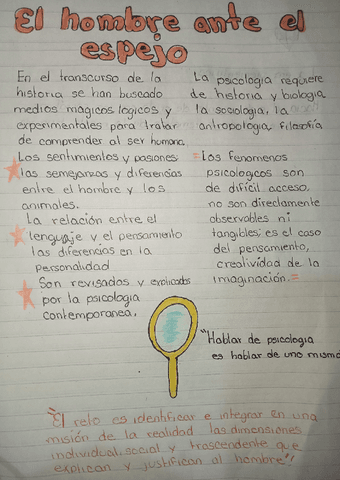 El hombre ante el
espejo
En el transcurso de la
historia se han buscado
medios magicos logicos y
experimentales para tratar
de comprender al ser humano.
Los sentimientos y pasiones
las semejanzas y diferencias
entre el hombre y los
animales.
La relación entre el
lenguaje y el pensamiento
las diferencias en la
personalidad
Son revisados y explicados
por la psicologia
contemporanea.
La psicologia requiere
de historia y biologia
la sociologia, la
antropologia, filosofia
=Los fenomenos
psicologicos son
de dificil acceso,
no son directamente
observables ni
tangibles; es el caso
del pensamiento,
creatividad de la
imaginación.=
"Hablar de psicologia
es hablar de uno mismo
"El reto es identificar e integrar en una
misión de la realidad las dimensiones
individual, social y trascendente que
explican y justifican al hombre"!